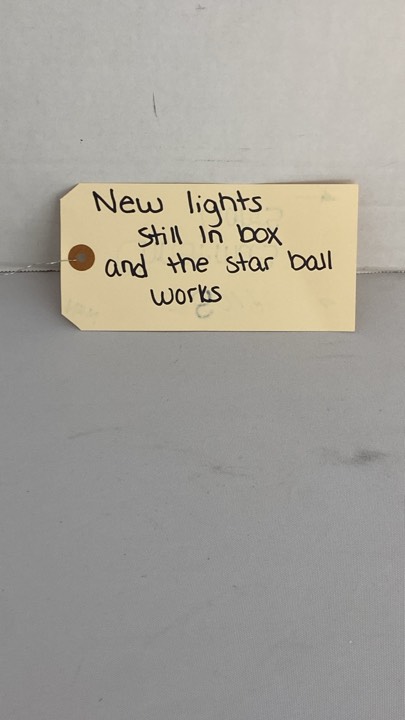 New lights
Still In box
and the star ball
works